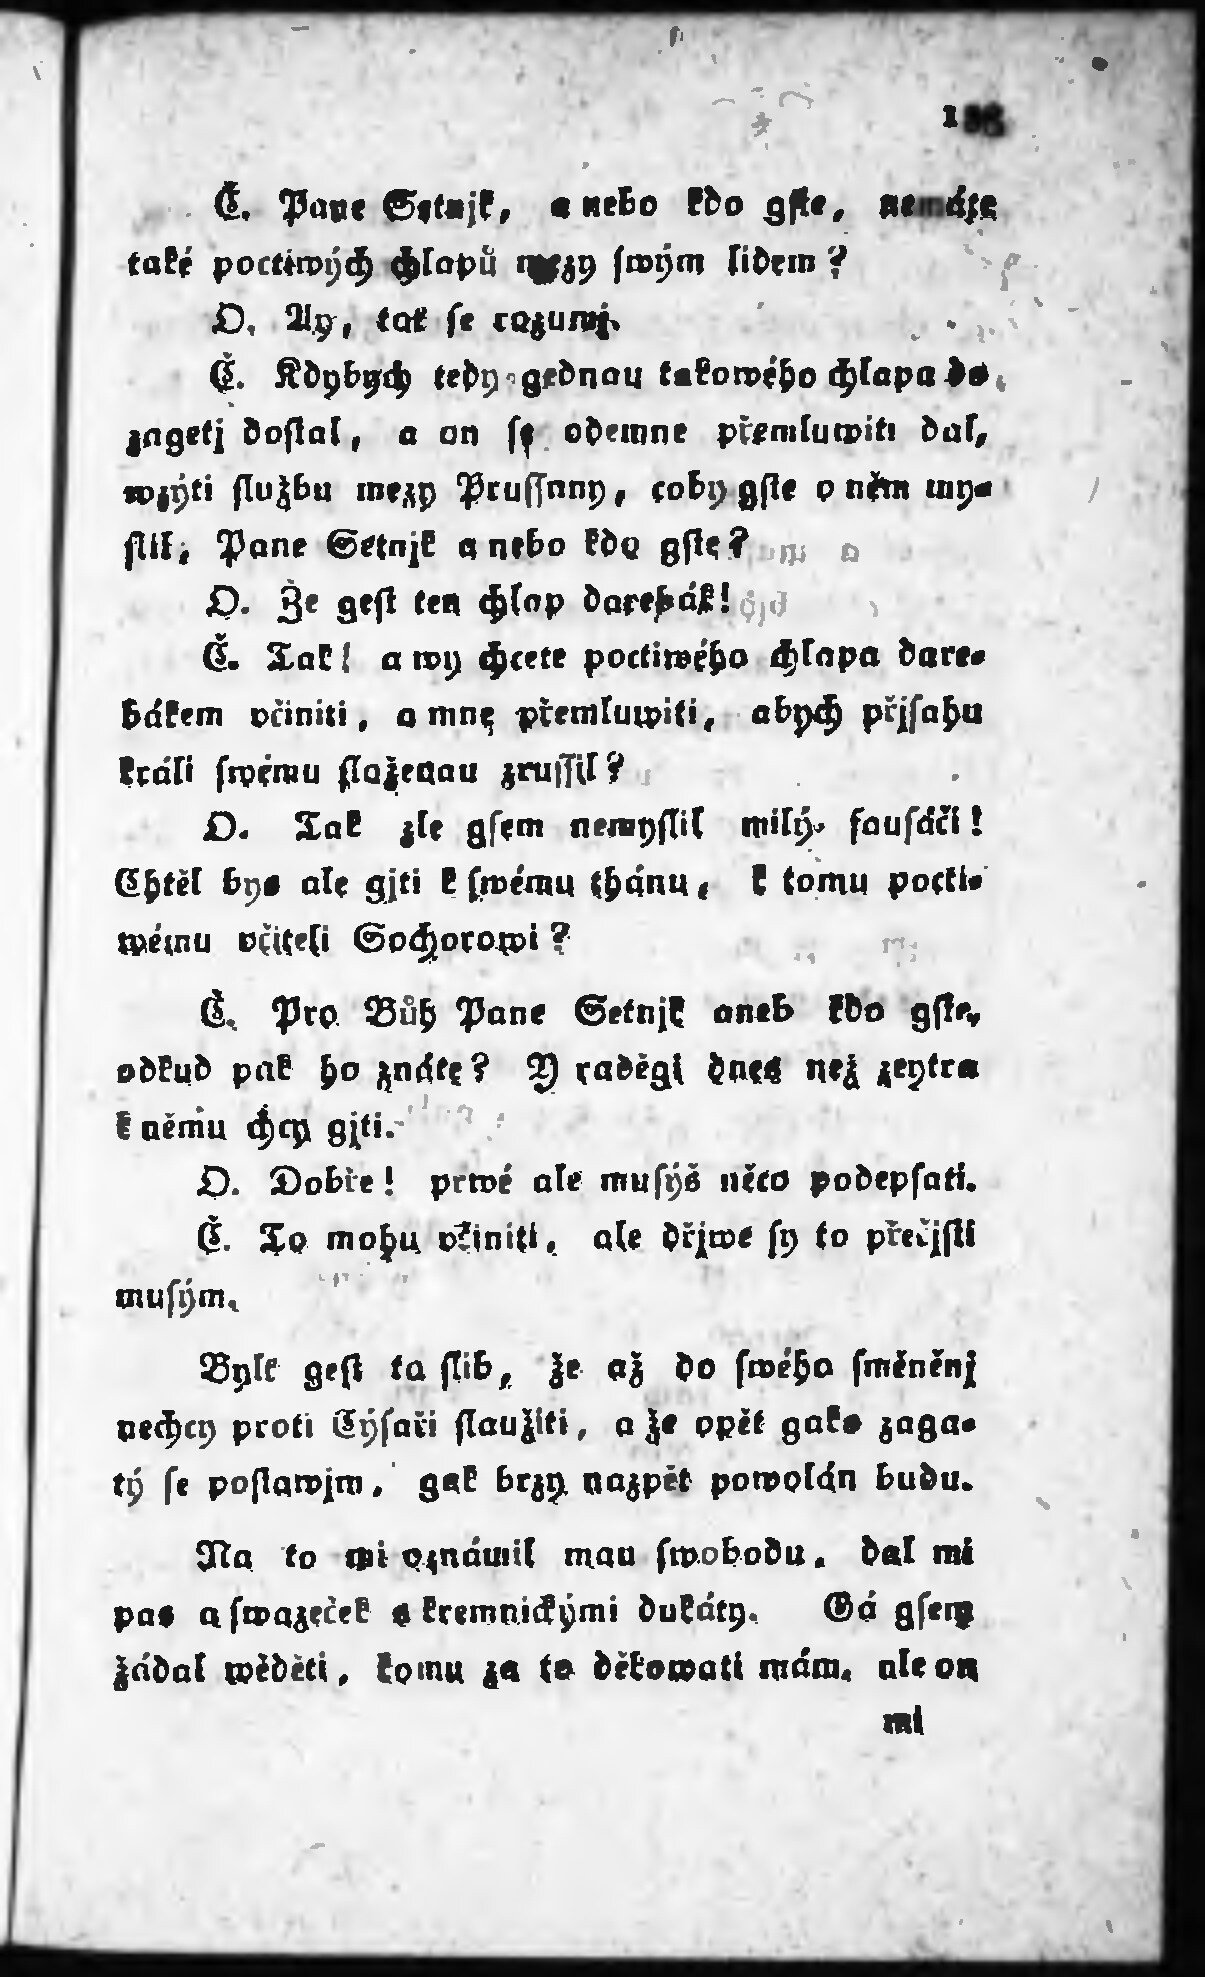 Č. Pane Setnjk, a nebo kdo gste, nemáte
také poctiwých chlapů mezy swým lidem?
O. Ay, tak se rozumj.
Č. Kdybych tedy gednau takowého chlapa do
zagetj dostal, a on se odemne přemluwiti dal,
wzýti službu mezy Prussany, coby gste o něm my-
slil, Pane Setnjk a nebo kdo gste?
O. Že gest ten chlap darebák!
Č. Tak! a wy chcete poctiwého chlapa dare-
bákem včiniti, a mne přemluwiti, abych přjsahu
králi swému složenau zrussil?
O. Tak zle gsem nemyslil milý fausáči!
Chtěl bys ale gjti k swému thánu, k tomu pocti-
wému včiteli Sochorowi?
Č. Pro Bůh Pane Setnjk aneb kdo gste,
odkud pak ho znáte? Y raděgi dnes než zeytra
k němu chcy gjti.
O. Dobře! prwé ale musýš něco podepsati.
Č. To mohu včiniti, ale dřjwe sy to přečjsti
musým.
Bylt gest to slib, že až do swého směněnj
nechcy proti Cýsaři slaužiti, a že opět gako zaga-
tý se postawjm, gak brzy nazpět powolán budu.
Na to mi oznámil mau swobodu, dal mi
pas a swazeček s kremnickými dukáty. Gá gsem
žádal wěděti, komu za to děkowati mám, ale on
mi